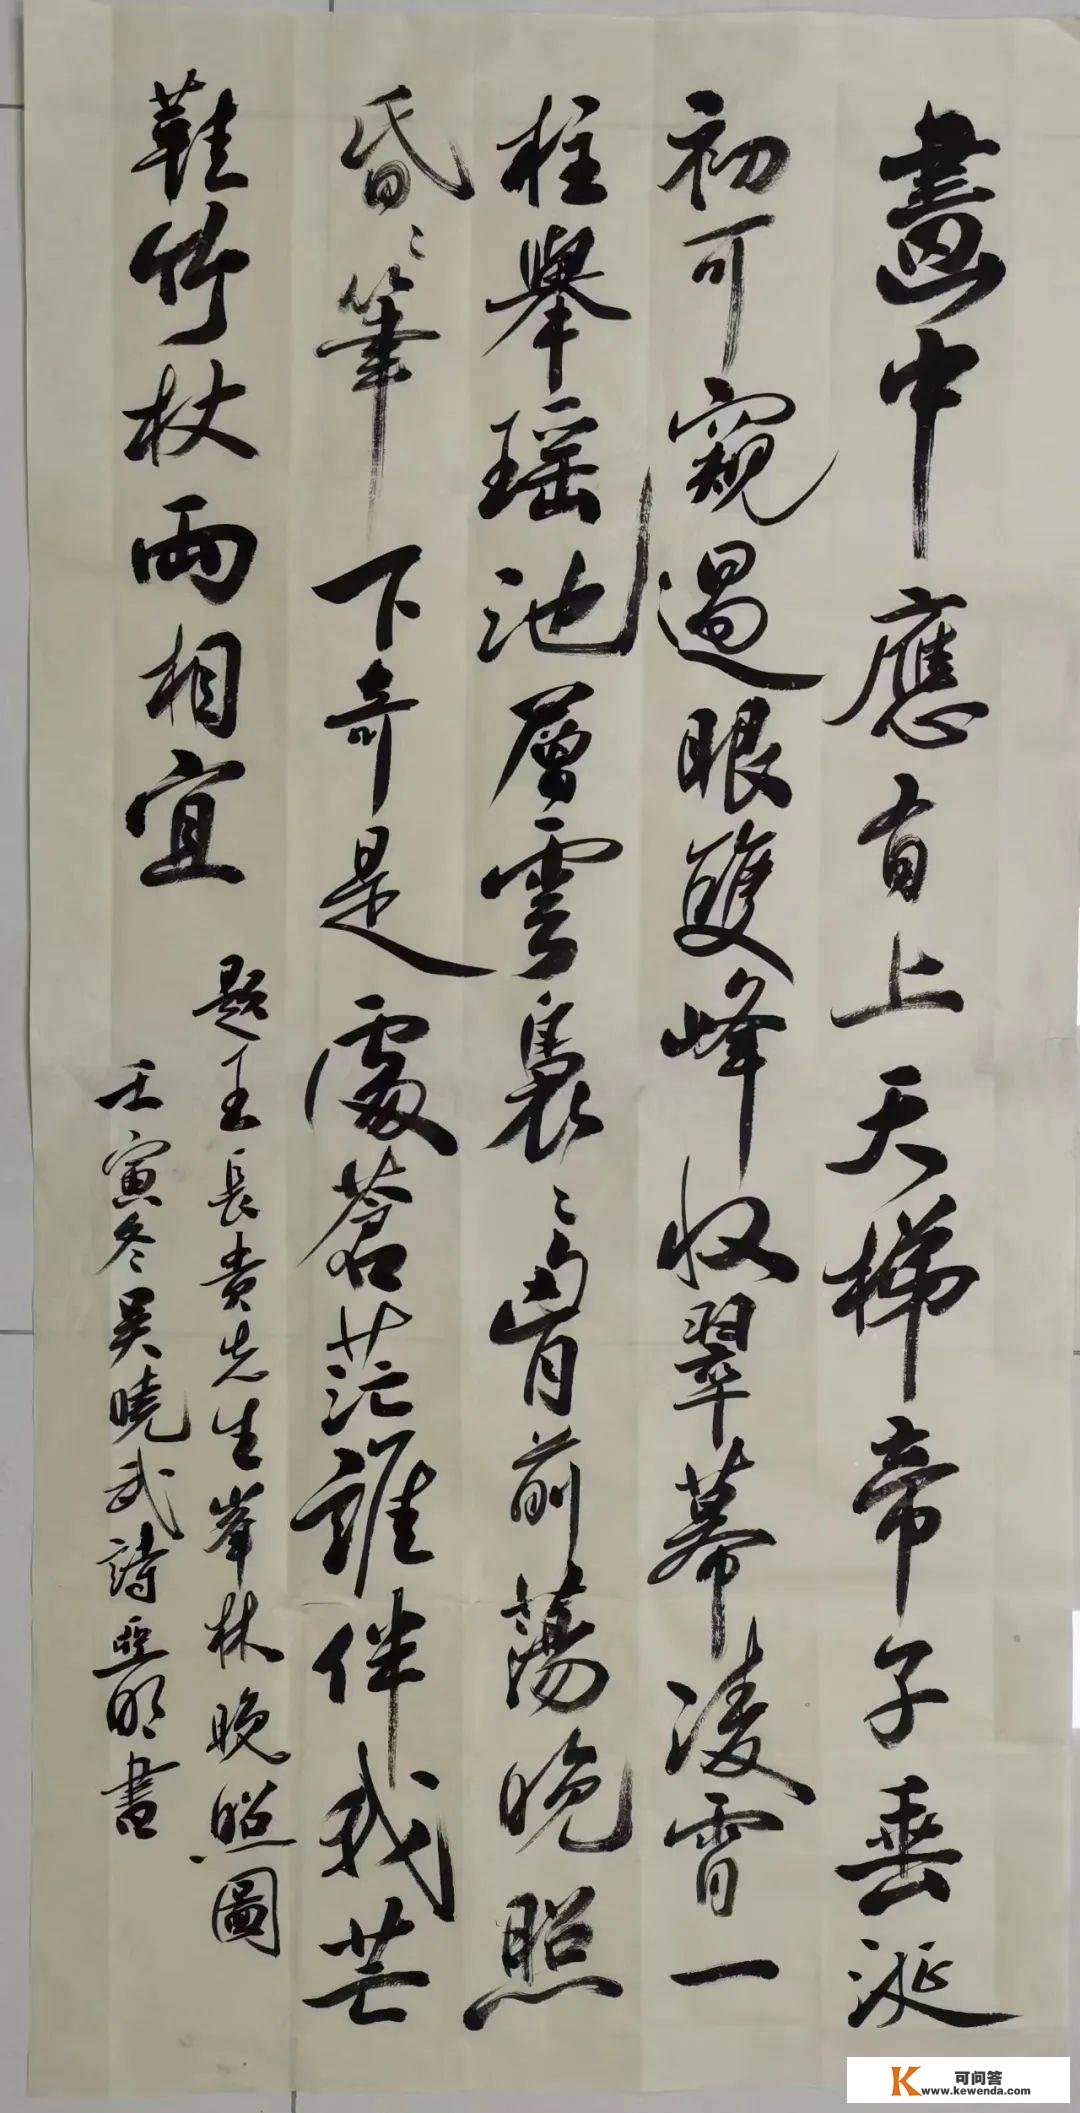 畫中應有上天梯帝子垂涎
初可窺過眼雙峰收翠幕凌霄一
柱舉瑶池層雲裊〻胸前蕩晚照
昏〻筆下奇是處蒼茫誰伴我芒
鞋竹杖兩相宜
題王長貴先生峯林晚照圖
壬寅冬吴曉武詩 明書
可问答
www.kewenda.com